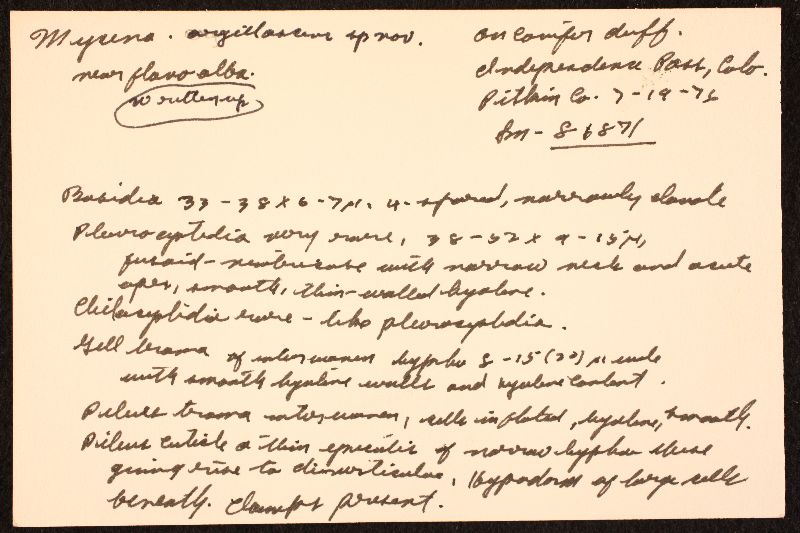 Mycena. argillaceus sp nov.
near flavo-alba.
written up
on conifer duff.
Independence Pass, Colo.
Pitkin Co. 7-19-76
Sm- 86871
Basidia 33-38 x 6-7 µ, 4-spored, narrowly clavate
Pleurocystidia very rare, 38-52 x 9-15 µ,
fusoid-ventricose with narrow neck and acute
apex, smooth, thin-walled hyaline.
Cheilocystidia rare - like pleurocystidia.
Gill trama of interwoven hyphae 8-15 (20) µ wide
with smooth hyaline walls and hyaline content.
Pileus trama interwoven, cells inflated, hyaline, smooth.
Pileus cuticle a thin epicutis of narrow hyphae these
giving rise to diverticulae, Hypoderm of large cells
beneath. Clamps present.